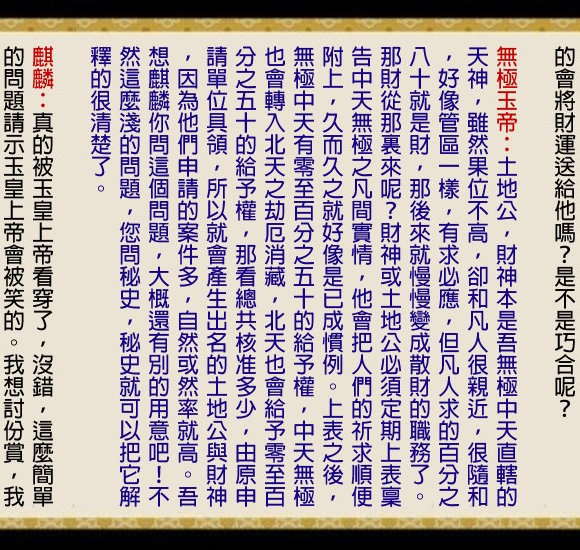 的會將財運送給他嗎？是不是巧合呢？
無極玉帝：土地公，財神本是吾無極中天直轄的
天神，雖然果位不高，卻和凡人很親近，很隨和
，好像管區一樣，有求必應，但凡人求的百分之
八十就是財，那後來就慢慢變成散財的職務了。
那財從那裏來呢？財神或土地公必須定期上表稟
告中天無極之凡間實情，他會把人們的祈求順便
附上，久而久之就好像是已成慣例。上表之後，
無極中天有零至百分之五十的給予權，中天無極
也會轉入北天之劫厄消藏，北天也會給予零至百
分之五十的給予權，那看總共核准多少，由原申
請單位具領，所以就會產生出名的土地公與財神
，因為他們申請的案件多，自然或然率就高。吾
想麒麟你問這個問題，大概還有別的用意吧！不
然這麼淺的問題，您問秘史，秘史就可以把它解
釋的很清楚了。
麒麟：真的被玉皇上帝看穿了，沒錯，這麼簡單
的問題請示玉皇上帝會被笑的。我想討份賞，我